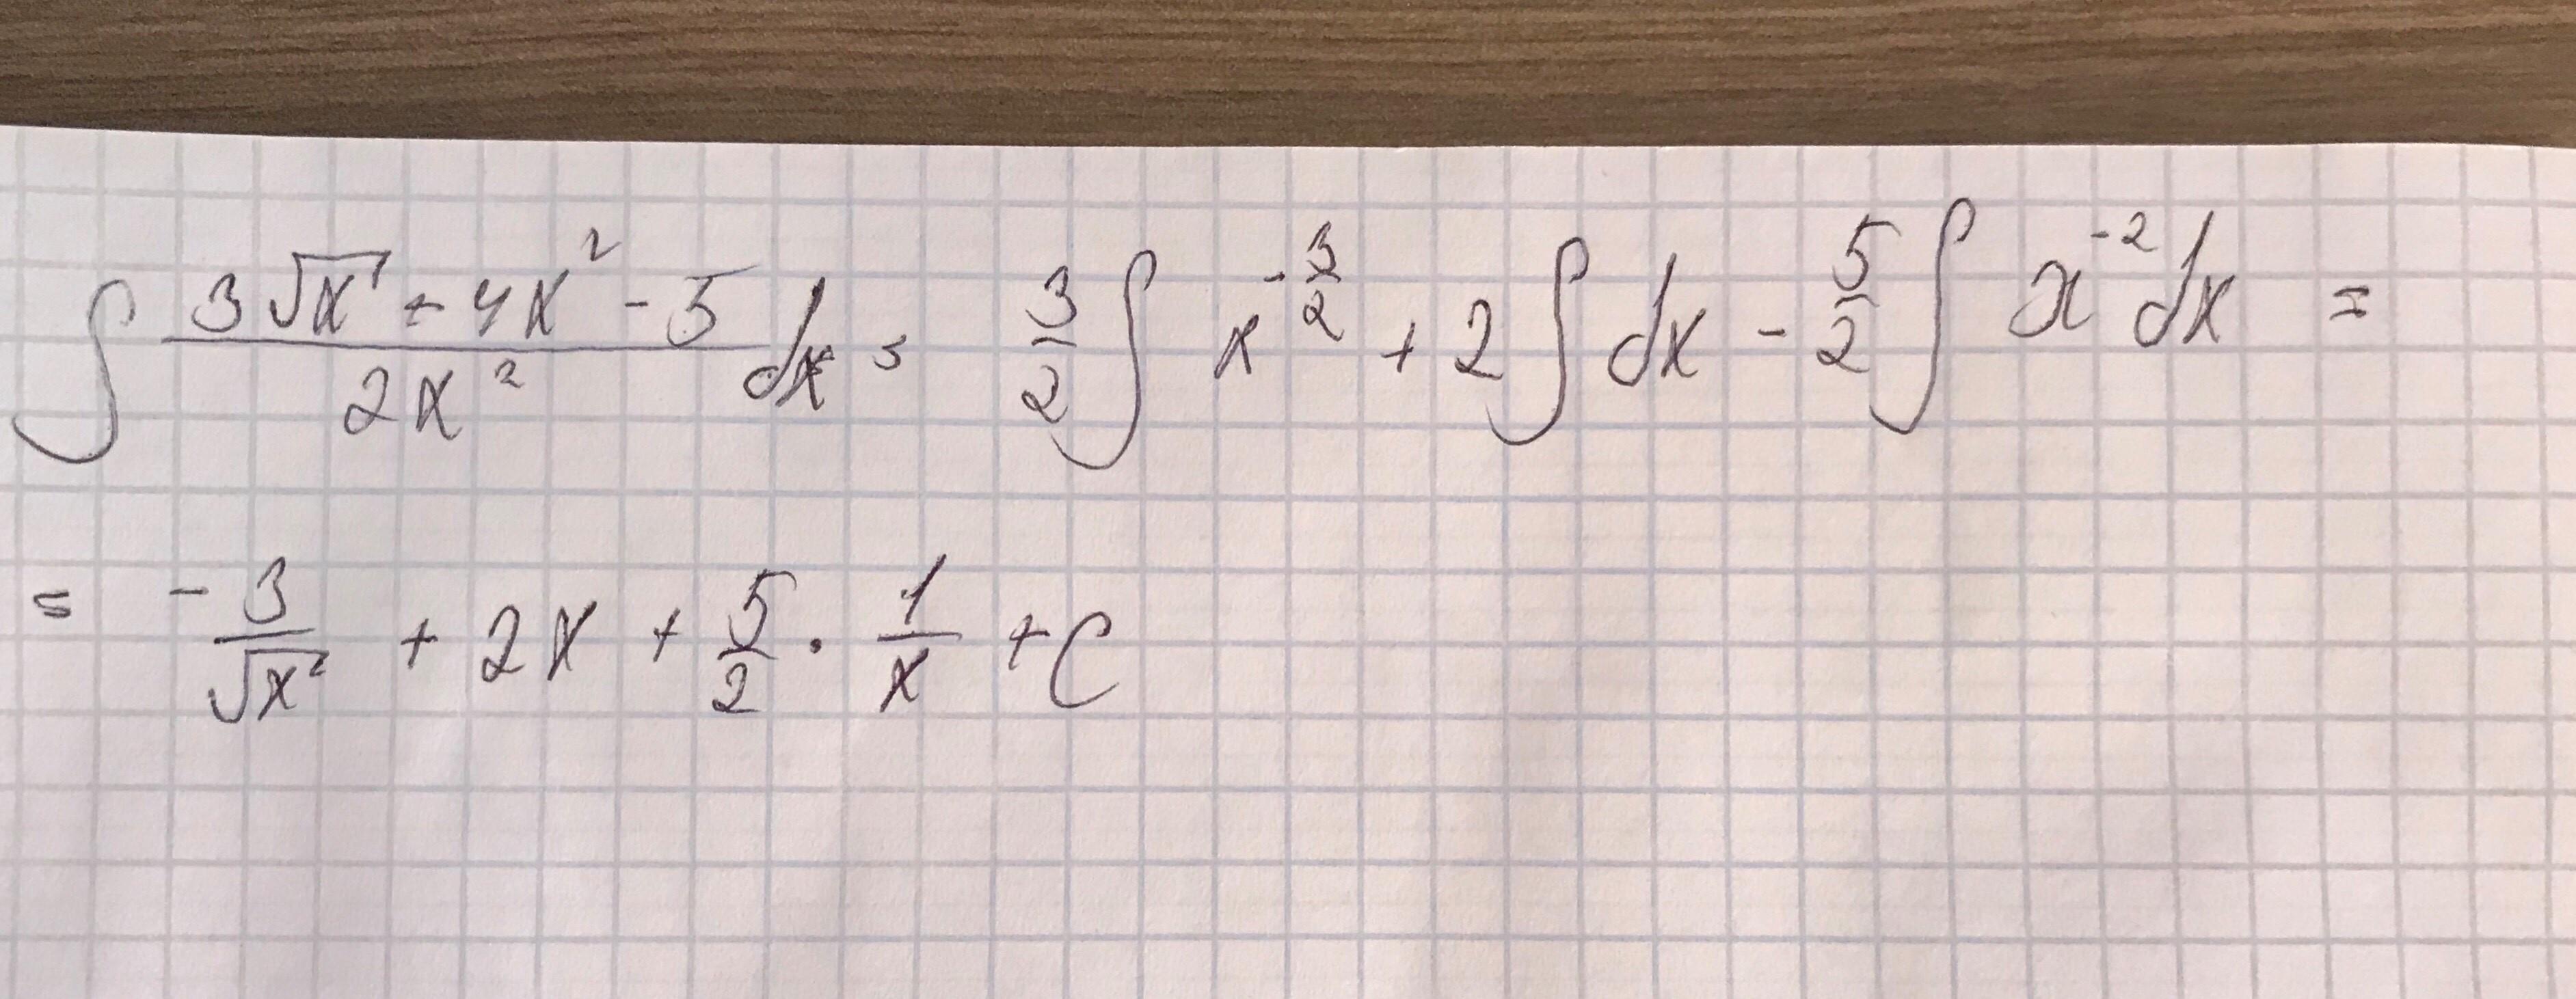 ∫ (3√x + 4x² - 5)/(2x²) dx = 3/2 ∫ x^(-3/2) + 2 ∫ dx - 5/2 ∫ x^(-2) dx =
= -3/√x + 2x + 5/2 · 1/x + C